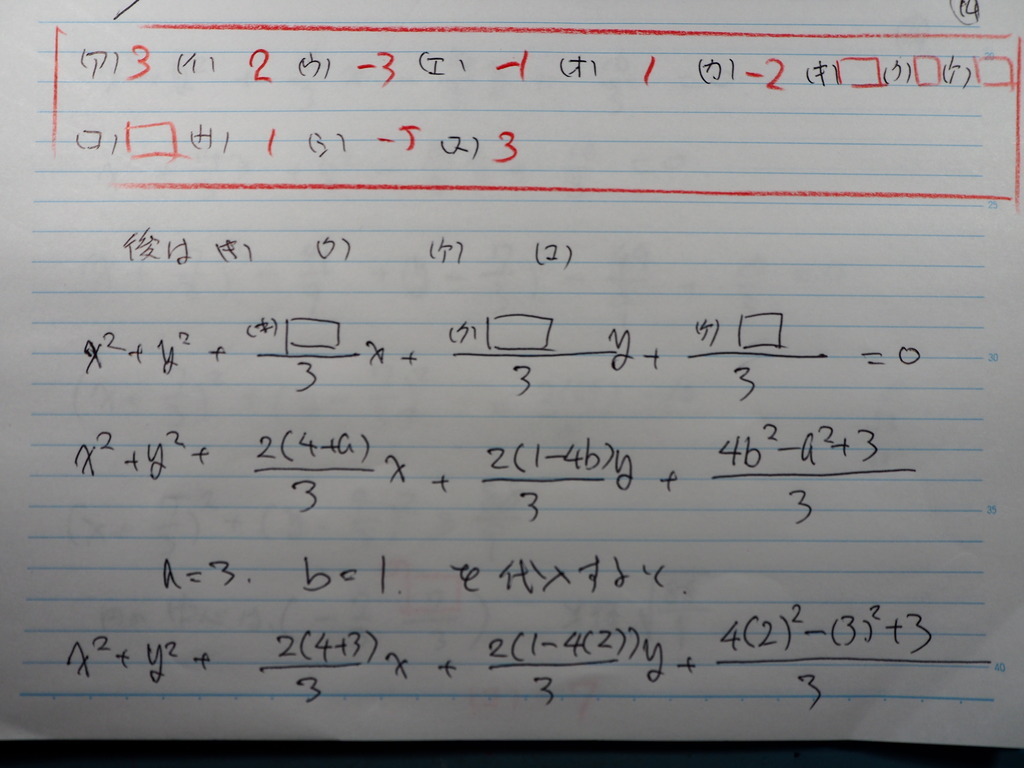 (14
(ア) 3 (イ) 2 (ウ) -3 (エ) -1 (オ) 1 (カ) -2 (キ) □ (ク) □ (ケ) □
(コ) □ (サ) 1 (シ) -5 (ス) 3
25
後は (キ) (ク) (ケ) (コ)
x² + y² + (キ)□/3 x + (ク)□/3 y + (ケ)□/3 = 0
30
x² + y² + 2(4+a)/3 x + 2(1-4b)y/3 + 4b²-a²+3/3
35
a=3. b=1. を代入すると.
x² + y² + 2(4+3)/3 x + 2(1-4(2))y/3 + 4(2)²-(3)²+3/3
40